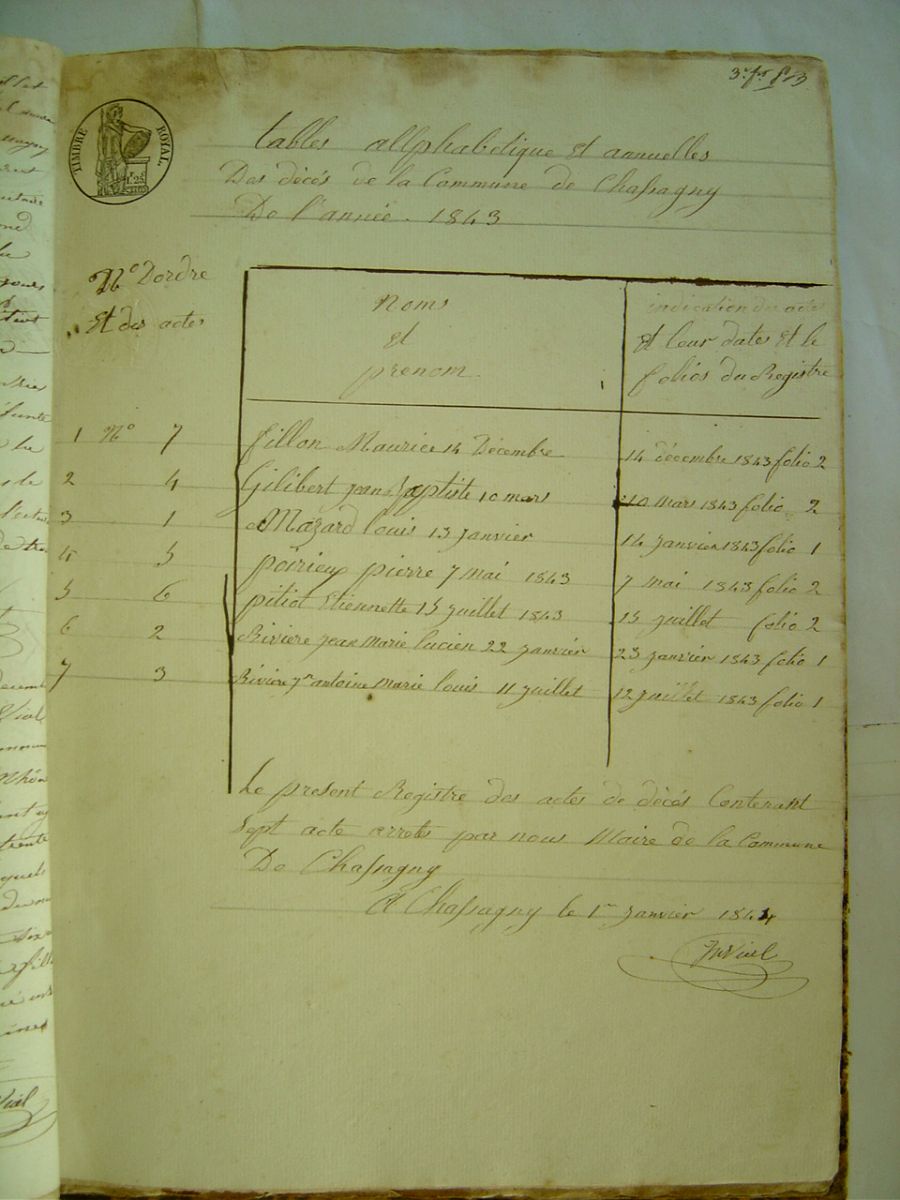 TIMBRE ROYAL.
1F. 25
tables allphabétique et annuelles
Des décés de la Commune de Chassagny
De l'année. 1843
No D'ordre
Et des actes
noms
et
prenom
indication des acte
et leur dates et le
folios du Registre
1 No 7 fillon Maurice 14 Décembre 14 décembre 1843 folio 2
2 4 Gilibert jean Baptiste 10 mars 10 mars 1843 folio 2
3 1 Mazard louis 13 janvier 14 janvier 1843 folio 1
4 5 poirieux pierre 7 mai 1843 7 mai 1843 folio 2
5 6 pitiot Etiennette 15 juillet 1843 15 juillet folio 2
6 2 Riviere jean Marie lucien 22 janvier 23 janvier 1843 folio 1
7 3 Riviere jn antoine Marie louis 11 juillet 12 juillet 1843 folio 1
Le present Registre des actes de décés Contenant
Sept acte arrete par nous Maire de la Commune
De Chassagny
A Chassagny le 1er janvier 1844
Viel